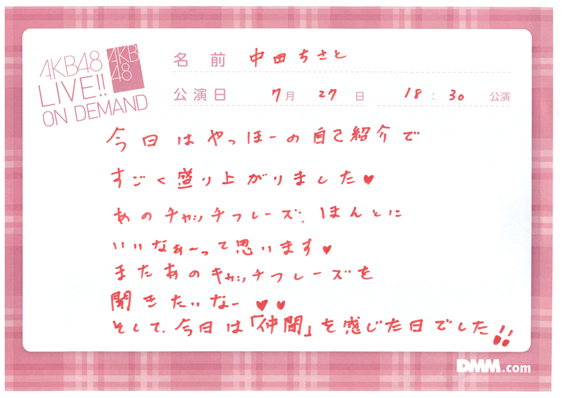 AKB48
LIVE!!
ON DEMAND
AKB
48
名前 中田ちさと
公演日 7月27日 18:30 公演
今日はやっほーの自己紹介で
すごく盛り上がりました♥
あのチャッチフレーズ、ほんとに
いいなぁーって思います♥
またあのキャッチフレーズを
聞きたいなー♥♥
そして、今日は「仲間」を感じた日でした!!
DMM.com